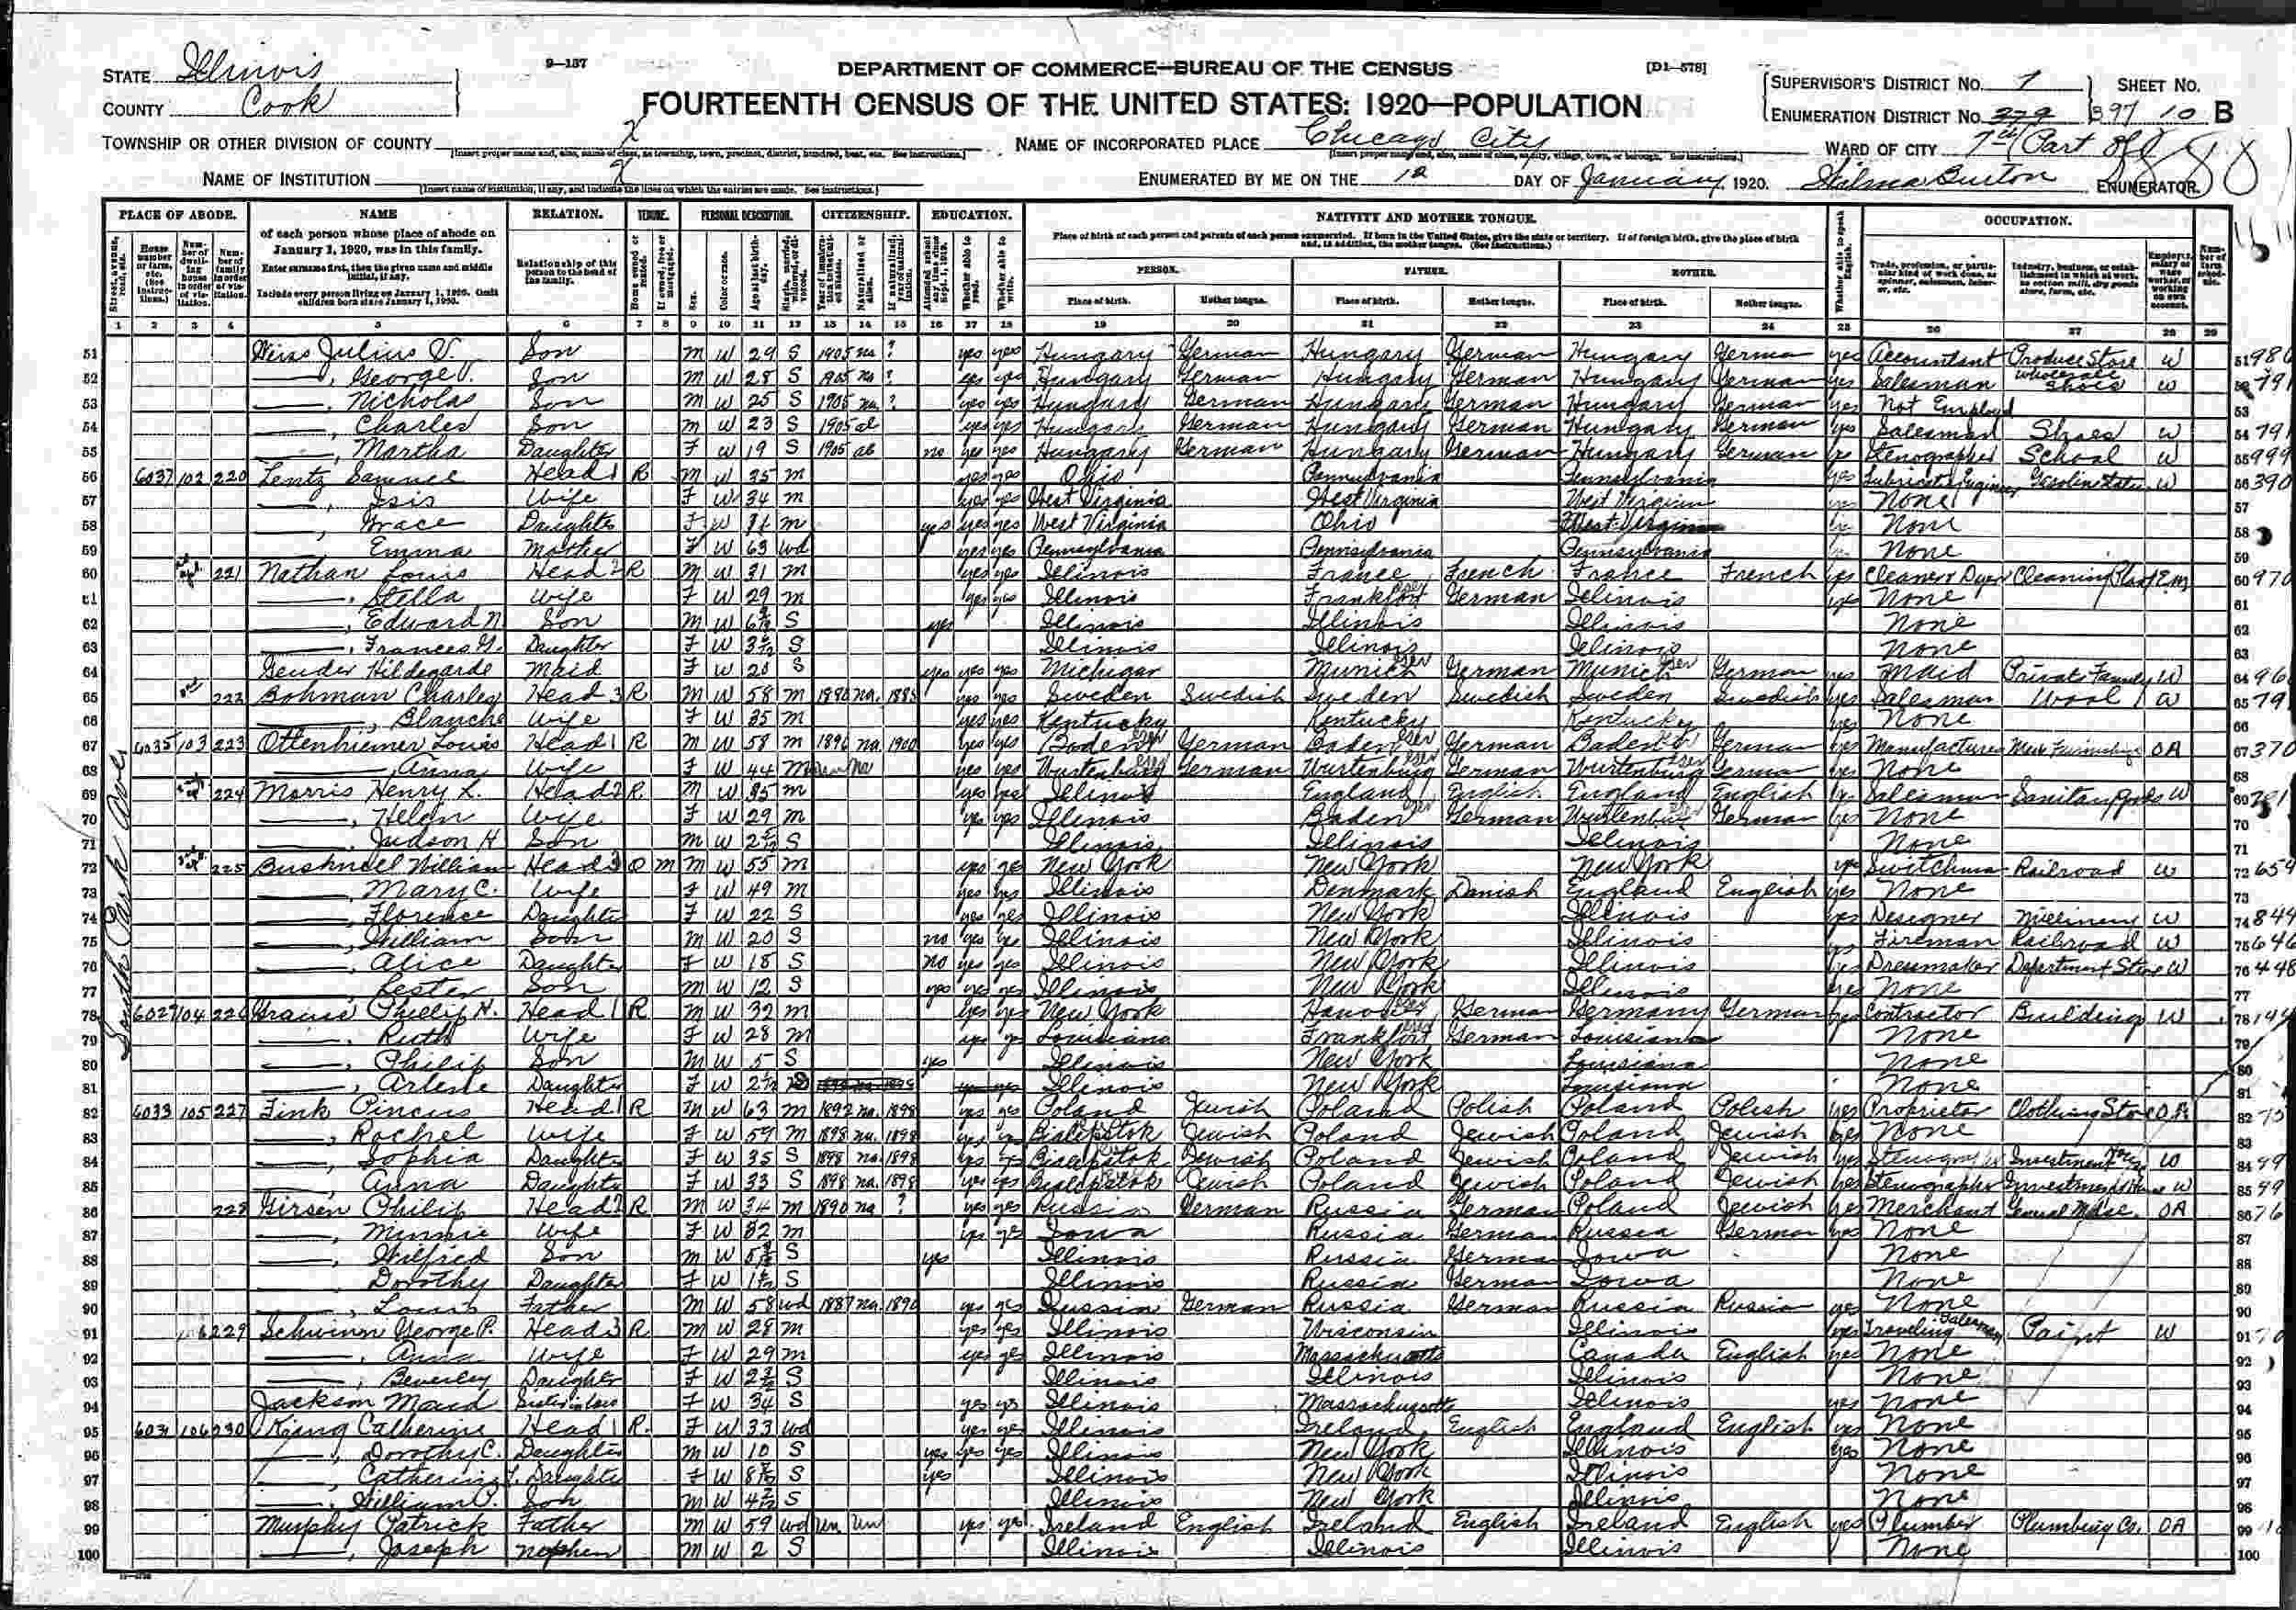 STATE Illinois
COUNTY Cook
9—137
DEPARTMENT OF COMMERCE—BUREAU OF THE CENSUS
[D1—578]
FOURTEENTH CENSUS OF THE UNITED STATES: 1920—POPULATION
SUPERVISOR'S DISTRICT No. 1
SHEET No.
ENUMERATION DISTRICT No. 379 10 B
TOWNSHIP OR OTHER DIVISION OF COUNTY
[Insert proper name and, also, name of class, as township, town, precinct, district, hundred, beat, etc. See instructions.]
NAME OF INCORPORATED PLACE Chicago City
WARD OF CITY 7th Part of
NAME OF INSTITUTION
[Insert name of institution, if any, and indicate the lines on which the entries are made. See instructions.]
ENUMERATED BY ME ON THE 12 DAY OF January, 1920. Wilma Burton ENUMERATOR.
PLACE OF ABODE. NAME RELATION. TENURE. PERSONAL DESCRIPTION. CITIZENSHIP. EDUCATION. NATIVITY AND MOTHER TONGUE. OCCUPATION.
of each person whose place of abode on January 1, 1920, was in this family.
Enter surname first, then the given name and middle initial, if any.
Include every person living on January 1, 1920. Omit children born since January 1, 1920.
Relationship of this person to the head of the family.
Place of birth of each person and parents of each person enumerated. If born in the United States, give the state or territory. If of foreign birth, give the place of birth and, in addition, the mother tongue. (See instructions.)
PERSON. FATHER. MOTHER.
Place of birth. Mother tongue. Place of birth. Mother tongue. Place of birth. Mother tongue.
1 2 3 4 5 6 7 8 9 10 11 12 13 14 15 16 17 18 19 20 21 22 23 24 25 26 27 28 29
South Park Ave
51 Weiss Julius V. Son M W 29 S 1905 na ? yes yes Hungary German Hungary German Hungary German yes Accountant Produce Store W
52 ——, George V. Son M W 28 S 1905 na ? yes yes Hungary German Hungary German Hungary German yes Salesman Wholesale Shoes W
53 ——, Nicholas Son M W 25 S 1905 na ? yes yes Hungary German Hungary German Hungary German yes Not Employed
54 ——, Charles Son M W 23 S 1905 al yes yes Hungary German Hungary German Hungary German yes Salesman Shoes W
55 ——, Martha Daughter F W 19 S 1905 al no yes yes Hungary German Hungary German Hungary German yes Stenographer School W
56 6037 102 220 Lentz Samuel Head 1 R M W 35 M yes yes Ohio Pennsylvania Pennsylvania yes W
57 ——, Isis Wife F W 34 M yes yes West Virginia West Virginia West Virginia None
58 ——, Grace Daughter F W M yes yes yes West Virginia Ohio West Virginia None
59 ——, Emma Mother F W 63 wd yes yes Pennsylvania Pennsylvania Pennsylvania None
60 221 Nathan Louis Head 2 R M W 31 M yes yes Illinois France French France French yes Cleaner & Dyer Cleaning Plant Em
61 ——, Stella Wife F W 29 M yes yes Illinois Frankfort Ger German Illinois yes None
62 ——, Edward N. Son M W S yes Illinois Illinois Illinois None
63 ——, Frances G. Daughter F W S Illinois Illinois Illinois None
64 Gender Hildegarde Maid F W 20 S yes yes yes Michigan Munich Ger German Munich Ger German yes Maid Private Family W
65 222 Bohman Charles Head 3 R M W 58 M 1880 na. 1885 yes yes Sweden Swedish Sweden Swedish Sweden Swedish yes Salesman Wool W
66 ——, Blanche Wife F W 35 M yes yes Kentucky Kentucky Kentucky yes None
67 6035 103 223 Ottenheimer Louis Head 1 R M W 58 M 1890 na 1900 yes yes Baden Ger German Baden Ger German Baden Ger German yes Manufacturer Men's Furnishings OA
68 ——, Anna Wife F W 44 M na yes yes Wurtenburg German Wurtenburg German Wurtenburg German yes None
69 224 Morris Henry L. Head 2 R. M W 35 M yes yes Illinois England English England English yes Salesman W
70 ——, Helen Wife F W 29 M yes yes Illinois Baden Ger German Wurtenburg German yes None
71 ——, Judson H Son M W S Illinois Illinois Illinois None
72 225 Bushnell William Head 3 O M M W 55 M yes yes New York New York New York yes Switchman Railroad W
73 ——, Mary C. Wife F W 49 M yes yes Illinois Denmark Danish England English yes None
74 ——, Florence Daughter F W 22 S yes yes Illinois New York Illinois yes Designer Millinery W
75 ——, William Son M W 20 S no yes yes Illinois New York Illinois yes Fireman Railroad W
76 ——, Alice Daughter F W 18 S no yes yes Illinois New York Illinois yes Dressmaker Department Store W
77 ——, Lester Son M W 12 S yes yes yes Illinois New York Illinois yes None
78 6029 104 226 Phillip H. Head 1 R M W 32 M yes yes New York Hanover Ger German Germany German yes Contractor Buildings W
79 ——, Ruth Wife F W 28 M yes yes Louisiana Frankfort Ger German Louisiana None
80 ——, Philip Son M W 5 S yes Illinois New York Louisiana None
81 ——, Arlene Daughter F W Illinois New York Louisiana None
82 6033 105 227 Fink Pincus Head 1 R M W 63 M 1892 na. 1898 yes yes Poland Jewish Poland Polish Poland Polish yes Proprietor Clothing Store OA
83 ——, Rachel Wife F W 59 M 1898 na. 1898 yes yes Bialystok Jewish Poland Jewish Poland Jewish yes None
84 ——, Sophia Daughter F W 35 S 1898 na. 1898 yes yes Bialystok Jewish Poland Jewish Poland Jewish yes Stenographer Investment W
85 ——, Anna Daughter F W 33 S 1898 na. 1898 yes yes Bialystok Jewish Poland Jewish Poland Jewish yes Stenographer Investment W
86 228 Girsen Philip Head 2 R M W 34 M 1890 na ? yes yes Russia German Russia German Poland Jewish yes Merchant General Mdse. OA
87 ——, Minnie Wife F W 32 M yes yes Iowa Russia German Russia German yes None
88 ——, Wilfred Son M W S yes Illinois Russia German Iowa None
89 ——, Dorothy Daughter F W S Illinois Russia German Iowa None
90 ——, Louis Father M W 58 wd 1887 na. 1890 yes yes Russia German Russia German Russia Russian yes None
91 229 Schwinn George P. Head 3 R M W 28 M yes yes Illinois Wisconsin Illinois yes Traveling Salesman Paint W
92 ——, Anna Wife F W 29 M yes yes Illinois Massachusetts Canada English yes None
93 ——, Beverley Daughter F W S Illinois Illinois Illinois None
94 Jackson Maud Sister in law F W 34 S yes yes Illinois Massachusetts Illinois yes None
95 6031 106 230 King Catherine Head 1 R. F W 33 wd yes yes Illinois Ireland English England English yes None
96 ——, Dorothy C. Daughter M W 10 S yes yes yes Illinois New York Illinois yes None
97 ——, Catherine Daughter F W S yes Illinois New York Illinois None
98 ——, William P. Son M W S Illinois New York Illinois None
99 Murphy Patrick Father M W 59 wd un un yes yes Ireland English Ireland English Ireland English yes Plumber Plumbing Co. OA
100 ——, Joseph Nephew M W 2 S Illinois Illinois Illinois None